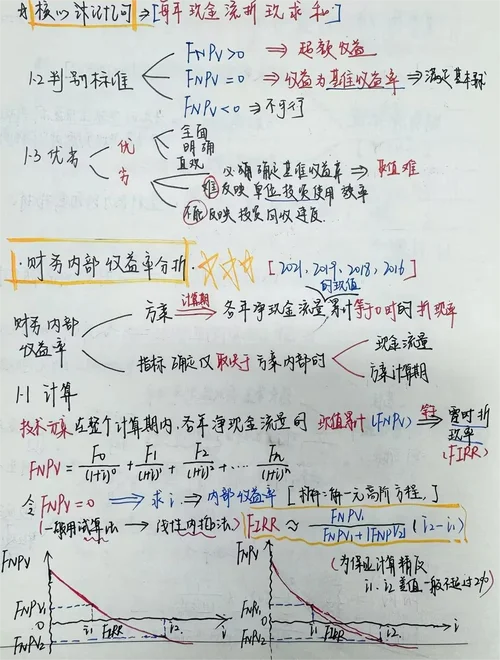 核心公式记忆⇒[每年现金流折现求和]
FNPV>0 ⇒ 超额收益
1.2 判别标准 FNPV=0 ⇒ 收益为基准收益率 ⇒ 满足基本标
FNPV<0 ⇒ 不可行
全面
优 明确
1.3 优劣 直观
劣 必须确定基准收益率 ⇒ 取值难
难反映单位投资使用效率
不能反映投资回收速度.
·财务内部收益率分析· ☆☆☆ [2021、2019、2018、2016]
的现值
方案 计算期 → 各年净现金流量累计等于0时的折现率
财务内部
收益率
现金流量
指标确定仅取决于方案内部的
方案计算期
1-1 计算
技术方案在整个计算期内,各年净现金流量的现值累计(FNPV) 等于零 ⇒ 零时折现率
(FIRR)
FNPV = F0/(1+i)^0 + F1/(1+i)^1 + F2/(1+i)^2 + ... Fn/(1+i)^n
令FNPV=0 ⇒ 求i ⇒ 内部收益率 [求解一元高阶方程.]
(一般用试算法 → 线性内插法) FIRR ≈ FNPV1/(FNPV1+|FNPV2|) (i2-i1)
(为保证计算精度
i1.i2差值一般不超过2%)
FNPV FNPV
FNPV1 FNPV1
0 i1 FIRR i2 i 0 i1 FIRR i2 i
FNPV2 FNPV2